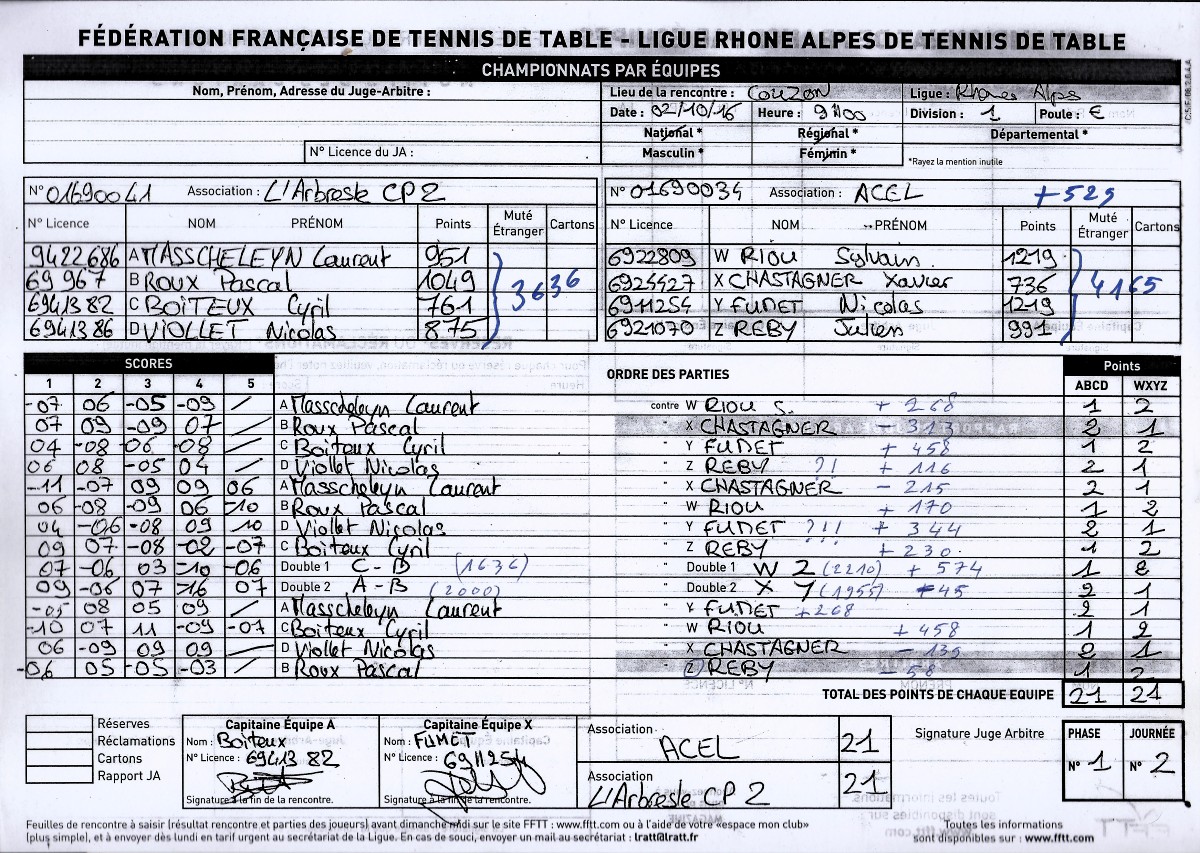 FÉDÉRATION FRANÇAISE DE TENNIS DE TABLE - LIGUE RHONE ALPES DE TENNIS DE TABLE
CHAMPIONNATS PAR ÉQUIPES
Nom, Prénom, Adresse du Juge-Arbitre :
N° Licence du JA :
Lieu de la rencontre : COUZON Ligue : Rhones Alps
Date : 02/10/16 Heure : 9H00 Division : 1 Poule : €
National * Régional * Départemental *
Masculin * Féminin * *Rayez la mention inutile
N° 01690041 Association : L'Arbresle CP2
N° Licence NOM PRÉNOM Points Muté Étranger Cartons
9422686 A MASSCHELEYN Laurent 951
69 967 B ROUX Pascal 1049
6941382 C BOITEUX Cyril 761
6941386 D VIOLLET Nicolas 875
3636
N° 01690034 Association : ACEL +529
N° Licence NOM PRÉNOM Points Muté Étranger Cartons
6922809 W RIOU Sylvain 1219
6925527 X CHASTAGNER Xavier 736
6911254 Y FUMET Nicolas 1219
6921070 Z REBY Julien 991
4165
SCORES ORDRE DES PARTIES Points
1 2 3 4 5 ABCD WXYZ
-07 06 -05 -09 / A Masscheleyn Laurent contre W RIOU S. + 268 1 2
07 09 -09 07 / B Roux Pascal " X CHASTAGNER - 313 2 1
04 -08 -06 -08 / C Boiteux Cyril " Y FUMET + 458 1 2
06 08 -05 04 / D Viollet Nicolas " Z REBY ?! + 116 2 1
-11 -07 09 09 06 A Masscheleyn Laurent " X CHASTAGNER - 215 2 1
06 -08 -09 06 -10 B Roux Pascal " W RIOU + 170 1 2
04 -06 -08 09 10 D Viollet Nicolas " Y FUMET ?!! + 344 2 1
09 07 -08 -02 -07 C Boiteux Cyril " Z REBY + 230 1 2
07 -06 03 -10 -06 Double 1 C - D (1636) " Double 1 W Z (2210) + 574 1 2
09 -06 07 -16 07 Double 2 A - B (2000) " Double 2 X Y (1955) -45 2 1
-05 08 05 09 / A Masscheleyn Laurent " Y FUMET +268 2 1
-10 07 11 -09 -07 C Boiteux Cyril " W RIOU + 458 1 2
06 -09 09 09 / D Viollet Nicolas " X CHASTAGNER - 139 2 1
-06 05 -05 -03 / B Roux Pascal " Z REBY - 58 1 2
TOTAL DES POINTS DE CHAQUE EQUIPE 21 21
Réserves
Réclamations
Cartons
Rapport JA
Capitaine Équipe A
Nom : Boiteux
N° Licence : 69413 82
Signature à la fin de la rencontre.
Capitaine Équipe X
Nom : FUMET
N° Licence : 6911254
Signature à la fin de la rencontre.
Association ACEL 21
Association L'Arbresle CP 2 21
Signature Juge Arbitre
PHASE JOURNÉE
N° 1 N° 2
Feuilles de rencontre à saisir (résultat rencontre et parties des joueurs) avant dimanche midi sur le site FFTT : www.fftt.com ou à l'aide de votre «espace mon club»
(plus simple), et à envoyer dès lundi en tarif urgent au secrétariat de la Ligue. En cas de souci, envoyer un mail au secrétariat : lratt@lratt.fr
Toutes les informations
sont disponibles sur : www.fftt.com